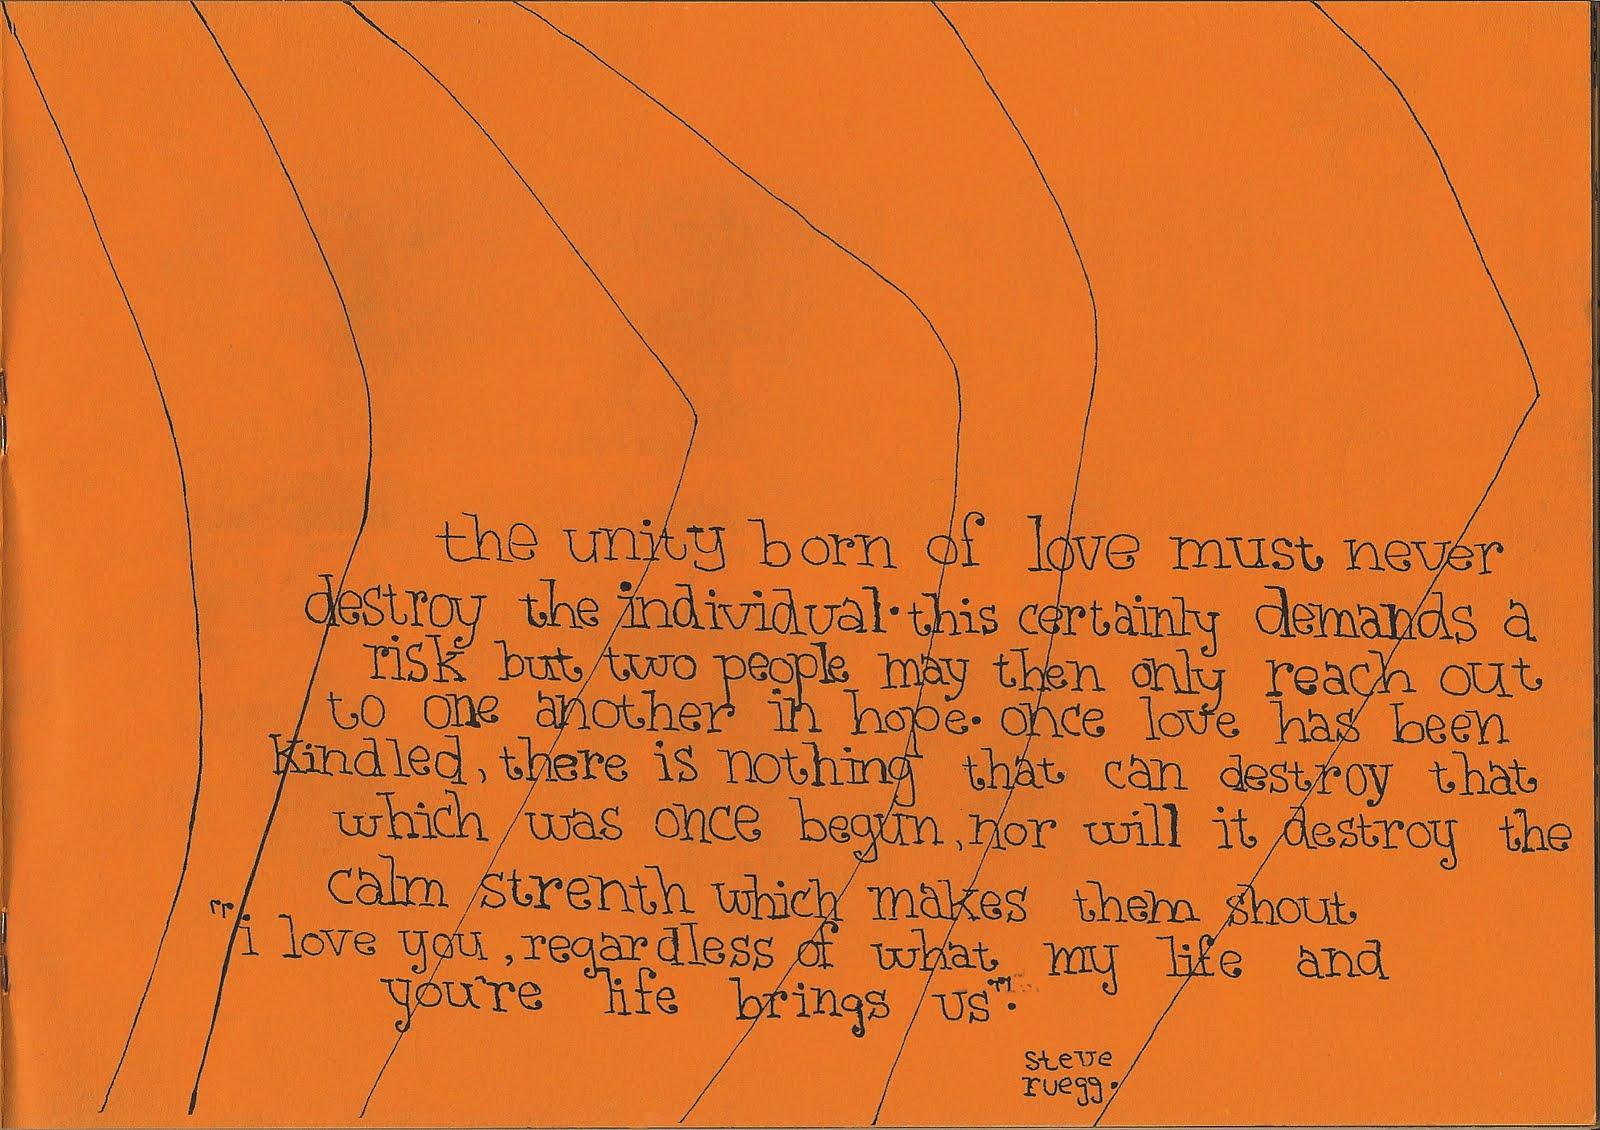 the unity born of love must never
destroy the individual. this certainly demands a
risk but two people may then only reach out
to one another in hope. once love has been
kindled, there is nothing that can destroy that
which was once begun, nor will it destroy the
calm strenth which makes them shout
"i love you, regardless of what my life and
you're life brings us".
steve
ruegg.